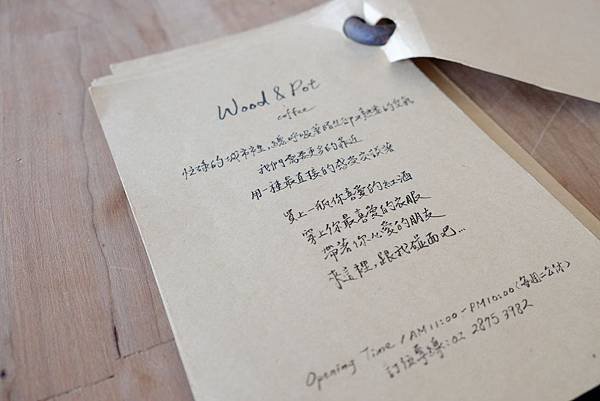 Wood & Pot
coffee
忙碌的城市裡,總呼吸著陌生
我們需要更多的靠近
用一種最直接的感受交談著
買上一瓶你喜愛的紅酒
穿上你最喜愛的衣服
帶著你心愛的朋友
來這裡,跟我碰面吧...
Opening Time / AM11:00-PM10:00(每周二公休)
訂位專線:02 2875 3982